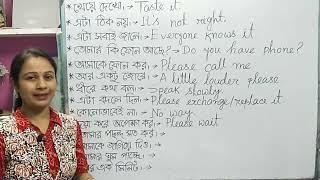 * খেয়ে দেখো → Taste it.
* এটা ঠিক নয়। → It's not right.
* এটা সবাই জানে। → Everyone knows it
* তোমার কি ফোন আছে? → Do you have phone?
* আমাকে ফোন কর। → Please call me
* আর একটু জোরে। → A little louder please
* ধীরে কথা বল। → Speak slowly.
* এটা বদলে দিন। → Please exchange/replace it
* কোনোভাবেই না। → No way.
করে অপেক্ষা কর। → Please wait
পছন্দ মত কর। →
জাগিয়ে দিও। →
ঘুম পাচ্ছে। →
এক মিনিট। →